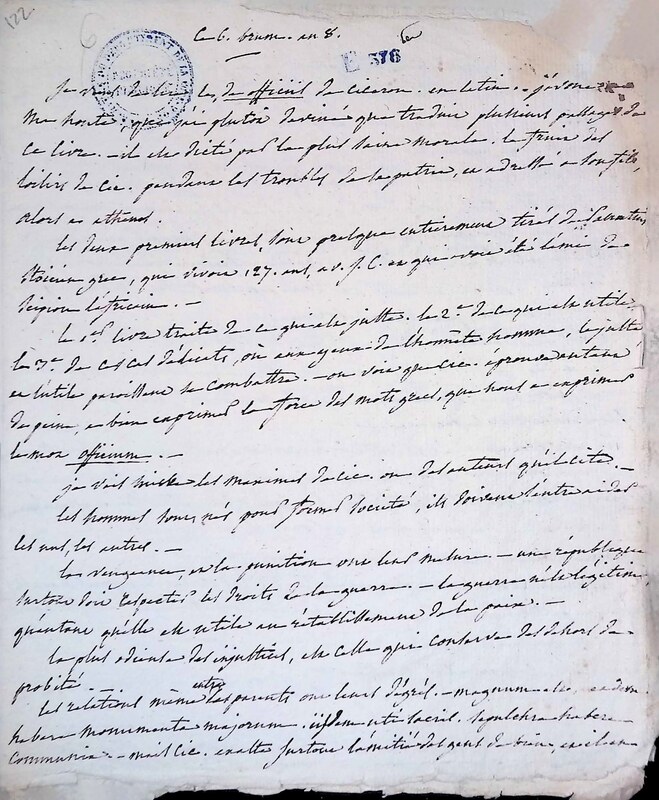 122.
6
Ce 6. brum. an 8.
E 376
Je viens de lire les de officiis de ciceron. en latin. j'avoue à
ma honte, que j'ai plutôt deviné que traduit plusieurs passages de
ce livre. - il est dicté par la plus saine morale. le fruit des
loisirs de cic. pendant les troubles de sa patrie, est adressé a son fils,
alors en athenes.
les deux premiers livres, sont presque entierement tirés de
stoïcien grec, qui vivoit 127. ans, av. J. C. et qui avoit été l'ami de
Scipion l'africain. -
le 1er livre traite de ce qui est juste. le 2e de ce qui est utile
le 3e de ces cas délicats, où aux yeux de l'honnête homme, le juste
et l'utile paroissent se combattre. - on voit que cic. éprouva autant
de peine, a bien exprimer la force des mots grecs, que nous a exprimer
le mot officium. -
je vais mettre les maximes de cic. ou des auteurs qu'il cite. -
les hommes sont nés pour former société, ils doivent s'entraider
les uns, les autres. -
la vengeance, et la punition ont leur mesure. - une république
surtout doit respecter les droits de la guerre. - la guerre n'est légitime,
qu'autant qu'elle est utile au rétablissement de la paix. -
la plus odieuse des injustices, est celle qui conserve des dehors de
probité. -
les relations même entre les parents ont leurs dégrés. - magnum est, eadem
habere monumenta majorum. iisdem uti sacris. sepulchra habere
communia. - mais cic. exalte surtout l'amitié des gens de bien, et il en